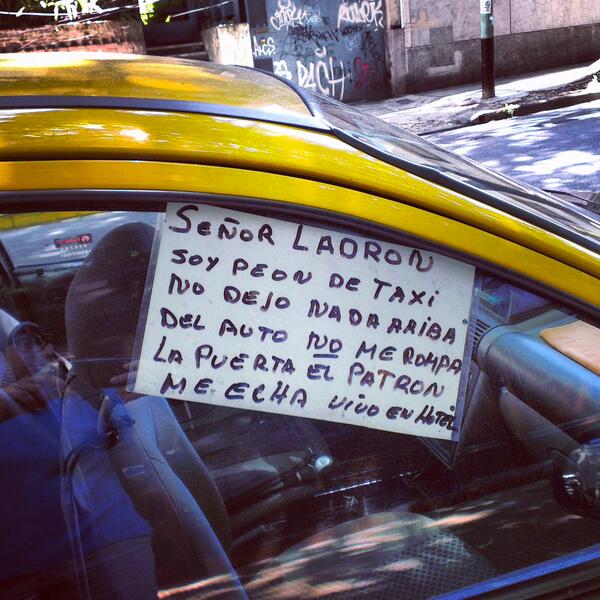 SEÑOR LADRON
SOY PEON DE TAXI
NO DEJO NADA ARIBA
DEL AUTO NO ME ROMPA
LA PUERTA EL PATRON
ME ECHA VIVO EN HOTEL